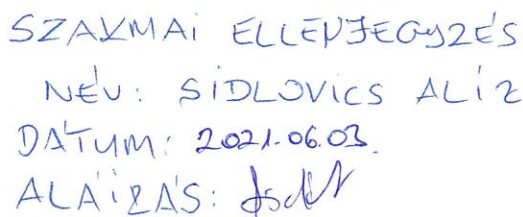 SZAKMAI ELLENJEGYZÉS
NÉV: SIDLOVICS ALIZ
DÁTUM: 2021.06.03.
ALÁÍRÁS: